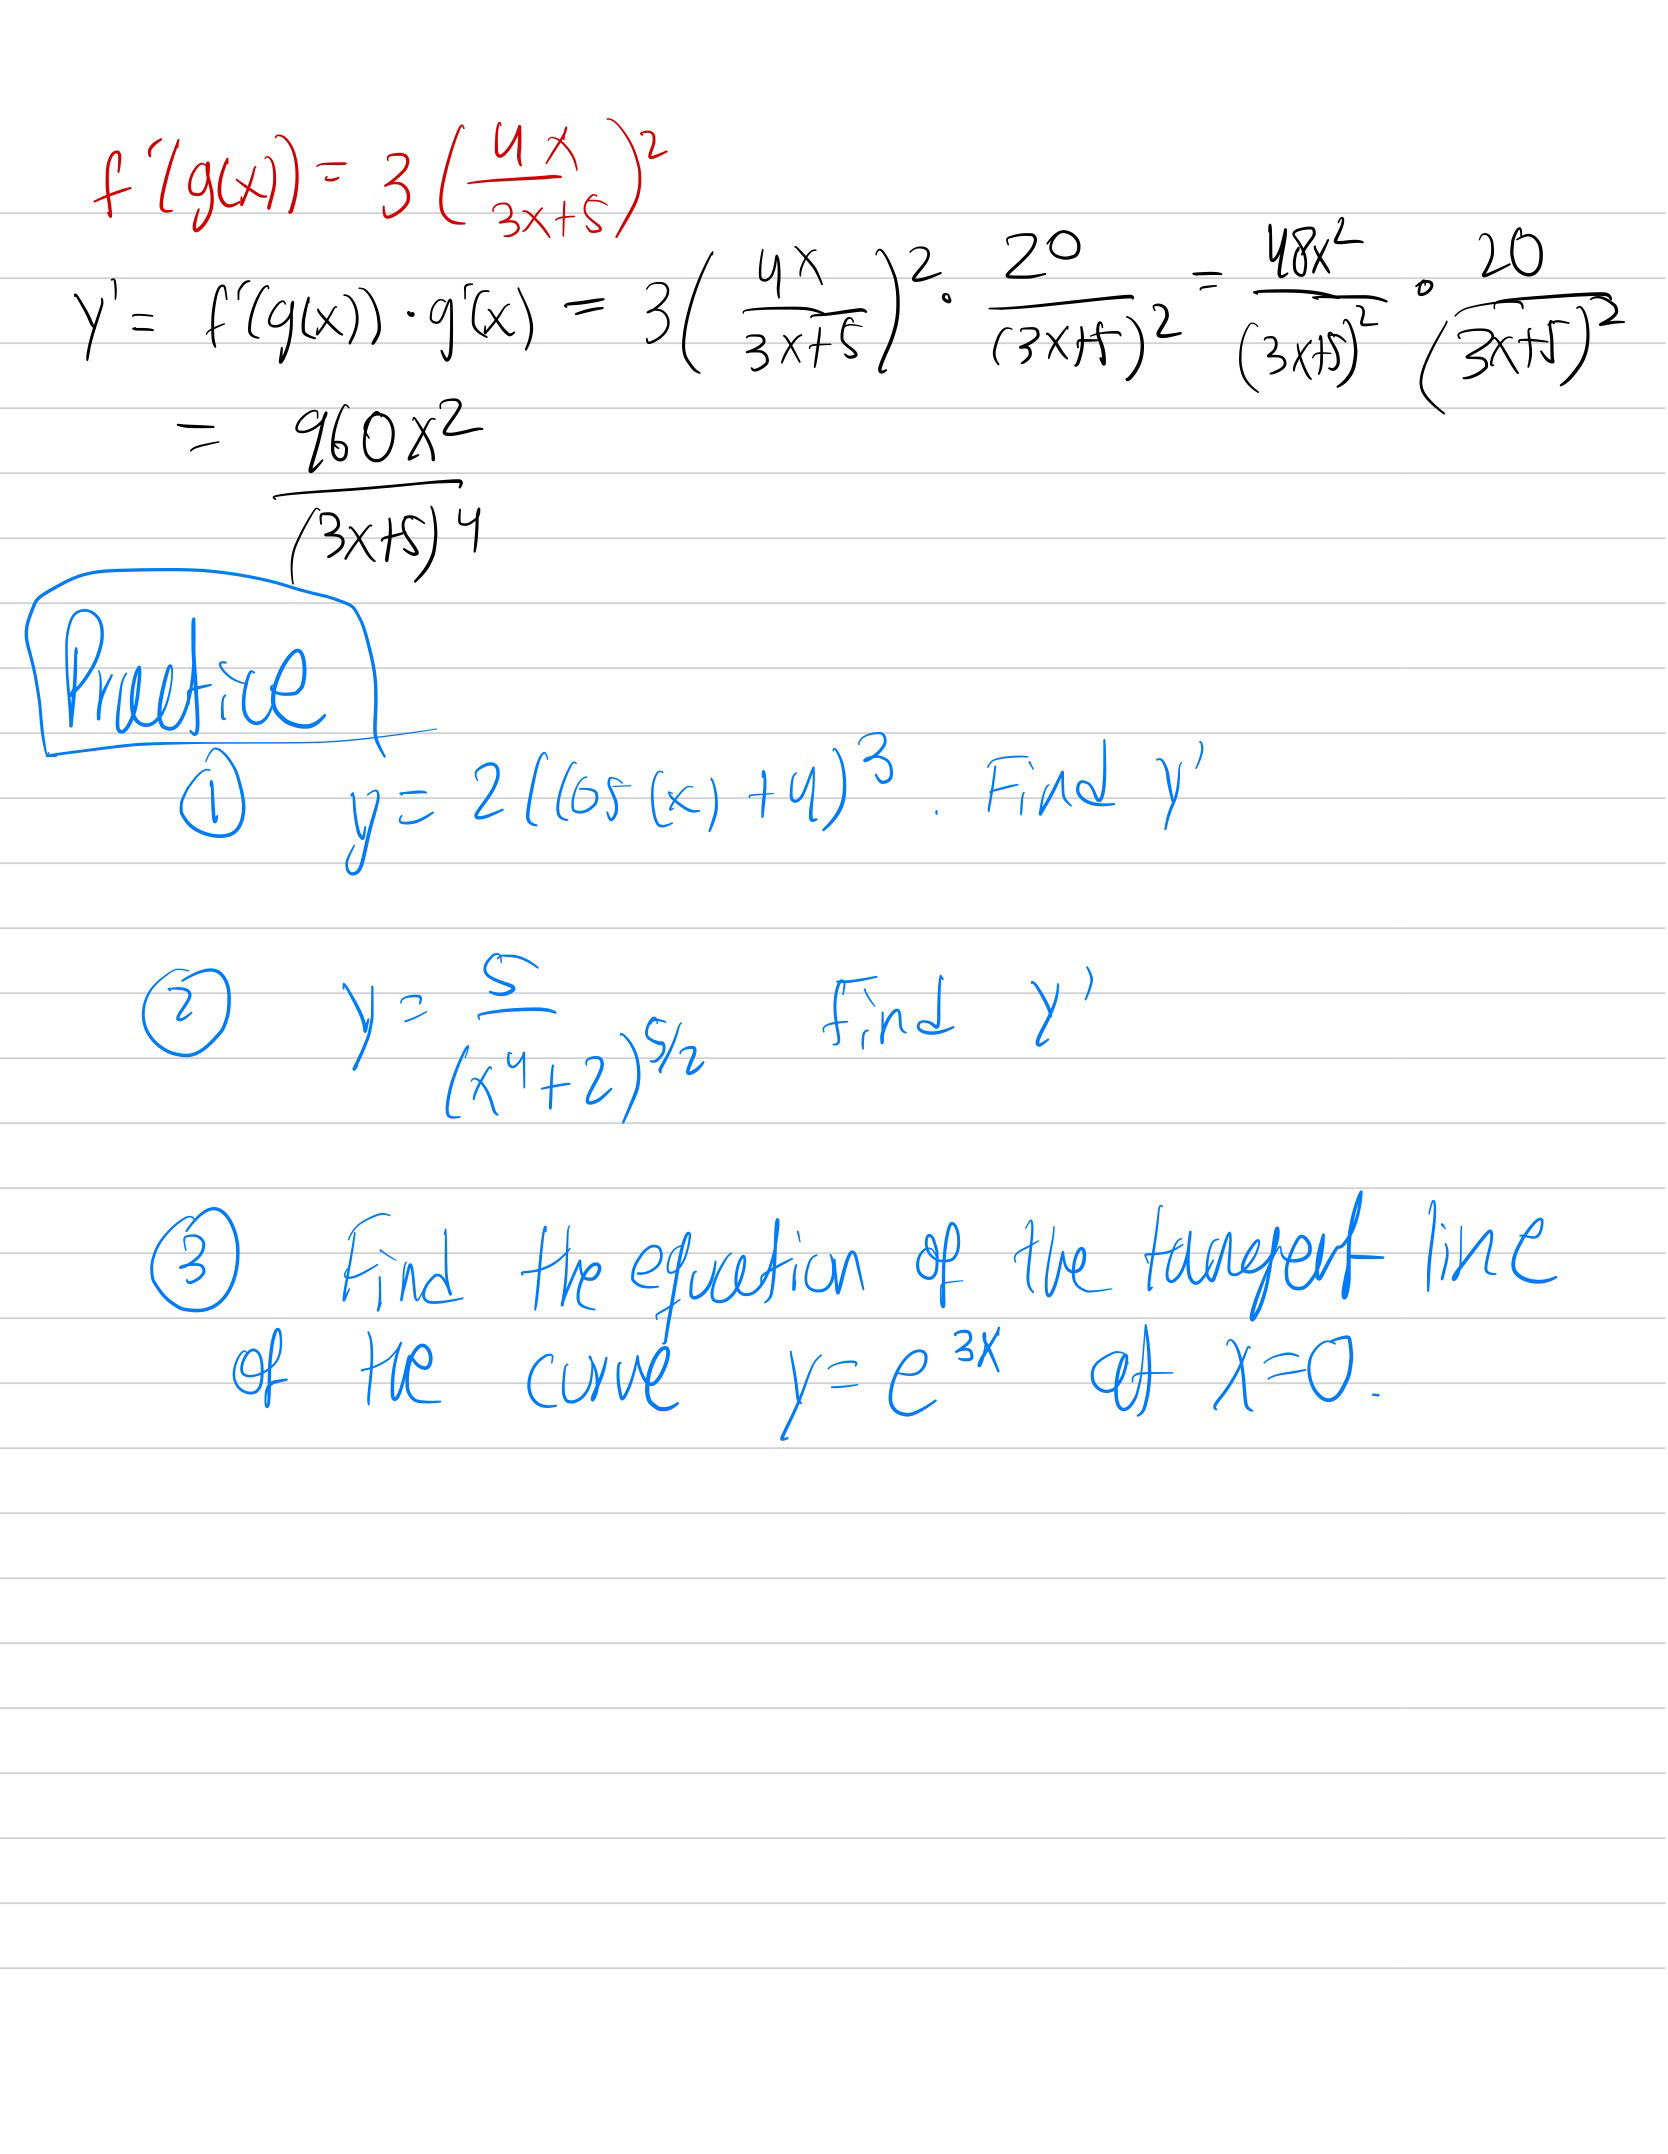 f'(g(x)) = 3(4x/(3x+5))²
y' = f'(g(x)) · g'(x) = 3(4x/(3x+5))² · 20/(3x+5)² = 48x²/(3x+5)² · 20/(3x+5)²
= 960x²/(3x+5)⁴
Practice
① y = 2(cos(x) + 4)³. Find y'
② y = 5/(x⁴+2)^(5/2) Find y'
③ Find the equation of the tangent line
of the curve y = e^(3x) at x=0.